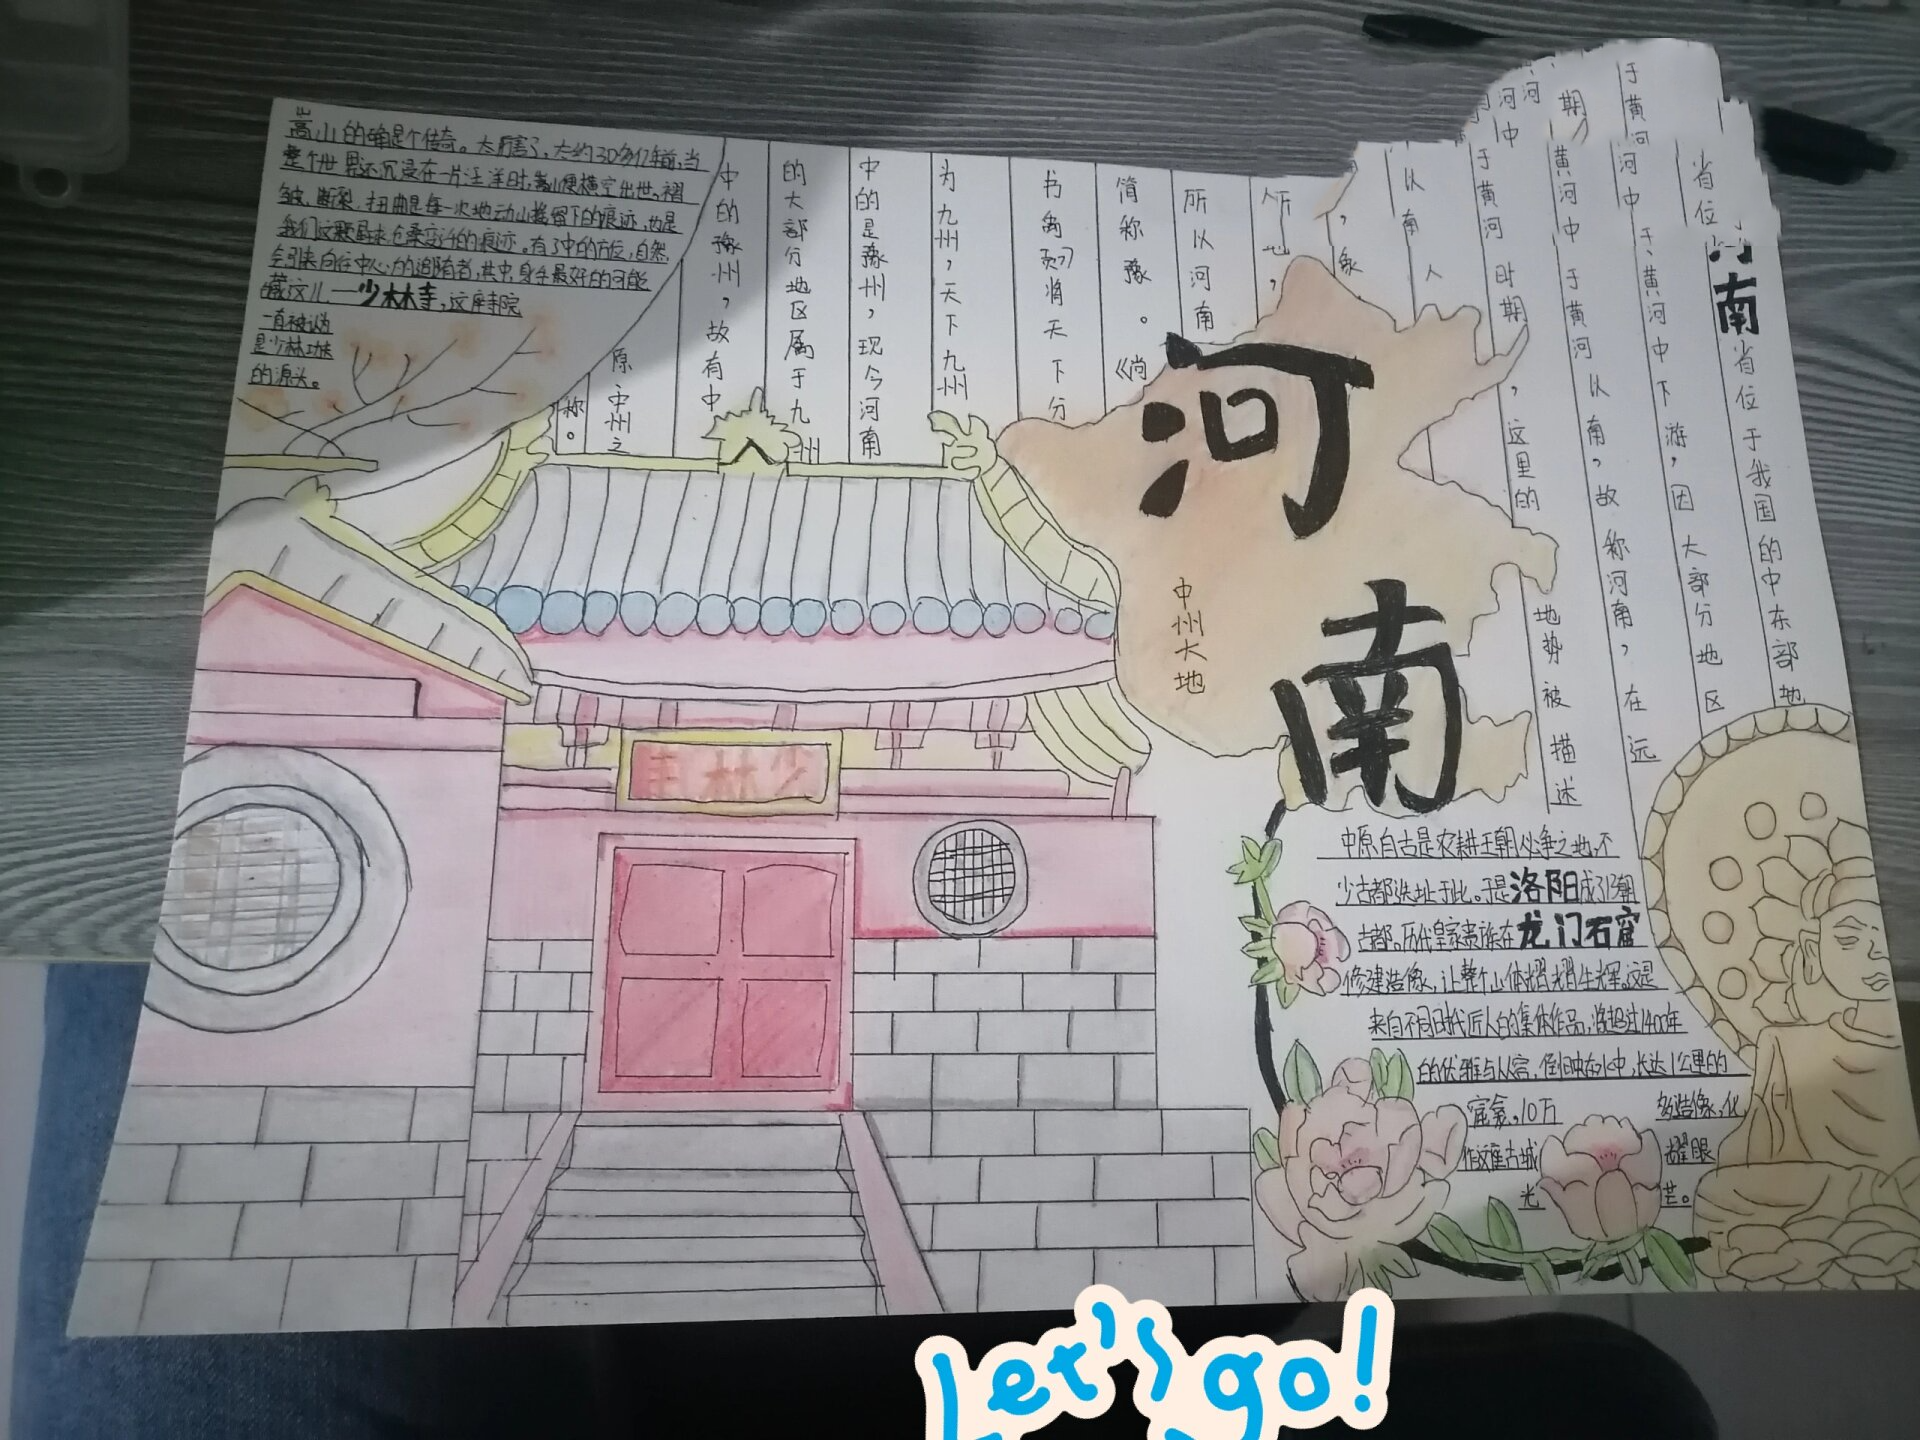 嵩山的确是个传奇。太厉害了，大约30多亿年前，当
整个世界还沉浸在一片汪洋时，嵩山便横空出世。褶
皱、断裂、扭曲是每一次地动山摇留下的痕迹，也是
我们这颗星球沧桑变迁的痕迹。有了中的方位，自然
会引来向往中心力的追随者，其中，身手最好的可能
藏这儿—少林寺，这座寺院
一直被认为
是少林功夫
的源头。
河南省位于我国的中东部地
省位于黄河中下游，因大部分地区
于黄河中下
黄河中于黄河以南，故称河南，在远
期
河中于黄河时期，这里的地势被描述
以南人
，象
人所地，
所以河南
简称豫。《尚
书禹贡》将天下分
为九州，天下九州
中的是豫州，现今河南
的大部分地区属于九州
中的豫州，故有中
原中州之
称。
河南
中州大地
少林寺
中原自古是农耕王朝必争之地，不
少古都选址于此。于是洛阳成了13朝
古都。历代皇家贵族在龙门石窟
修建造像，让整个山体熠熠生辉。这是
来自不同时代匠人的集体作品，将超过1400年
的优雅与从容，倒映在水中，长达1公里的
窟龛，10万多造像，化
作这座古城耀眼
光芒。
Let's go!